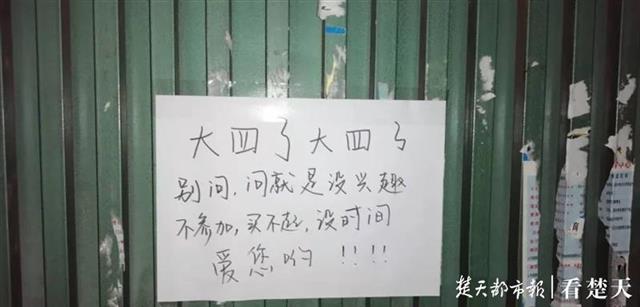 大四了大四了
别问,问就是没兴趣
不参加,买不起,没时间
爱您哟!!!!
楚天都市报|看楚天